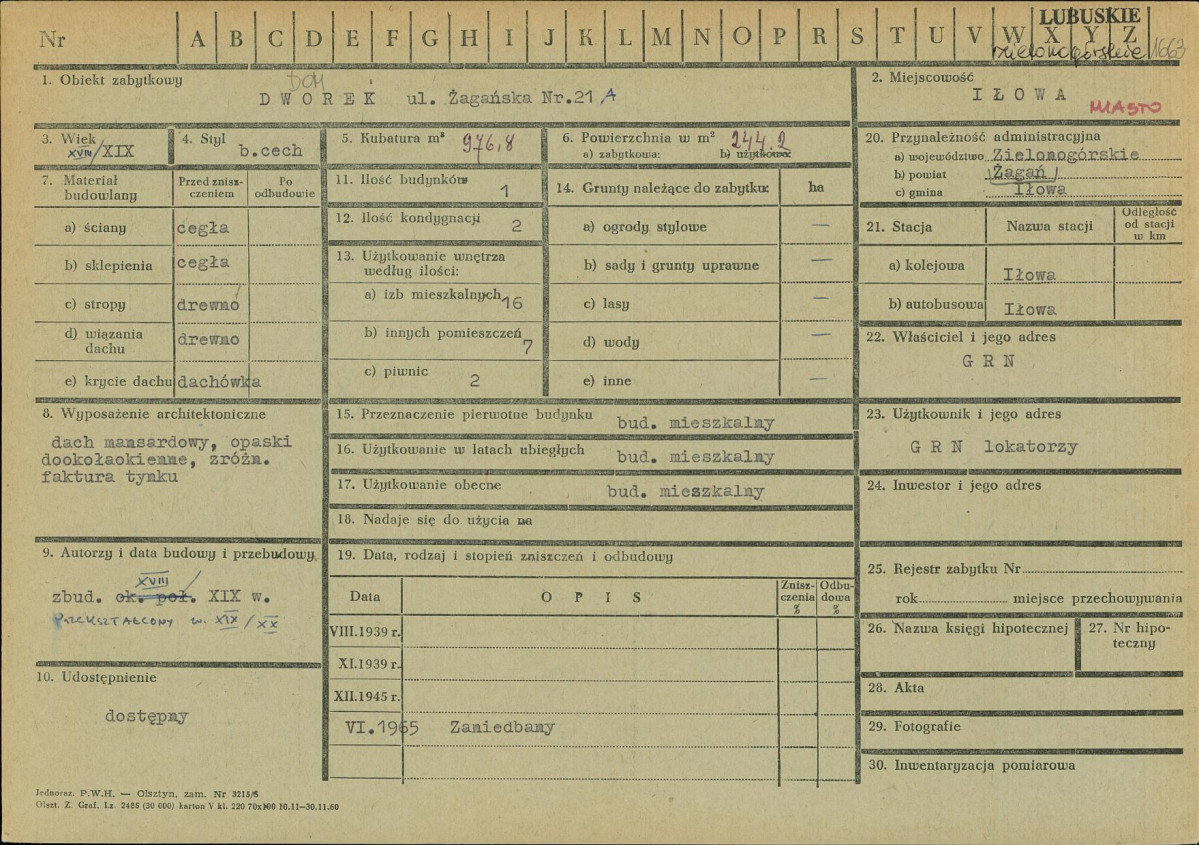 Nr A B C D E F G H I J K L M N O P R S T U V W X Y Z
LUBUSKIE
zielonogórskie 1663
1. Obiekt zabytkowy
DOM
DWOREK ul. Żagańska Nr.21 A
2. Miejscowość
IŁOWA
MIASTO
3. Wiek
XVIII/XIX
4. Styl
b.cech
5. Kubatura m³ 976,8
6. Powierzchnia w m² 244.2
a) zabytkowa: b) użytkowa:
20. Przynależność administracyjna
a) województwo Zielonogórskie
b) powiat Żagań
c) gmina Iłowa
7. Materiał budowlany
Przed zniszczeniem
Po odbudowie
a) ściany cegła
b) sklepienia cegła
c) stropy drewno
d) wiązania dachu drewno
e) krycie dachu dachówka
11. Ilość budynków 1
12. Ilość kondygnacji 2
13. Użytkowanie wnętrza
według ilości:
a) izb mieszkalnych 16
b) innych pomieszczeń 7
c) piwnic 2
14. Grunty należące do zabytku: ha
a) ogrody stylowe —
b) sady i grunty uprawne —
c) lasy —
d) wody —
e) inne —
21. Stacja
Nazwa stacji
Odległość
od stacji
w km
a) kolejowa Iłowa
b) autobusowa Iłowa
22. Właściciel i jego adres
G R N
8. Wyposażenie architektoniczne
dach mansardowy, opaski
dookołaokienne, zróżn.
faktura tynku
15. Przeznaczenie pierwotne budynku bud. mieszkalny
16. Użytkowanie w latach ubiegłych bud. mieszkalny
17. Użytkowanie obecne bud. mieszkalny
18. Nadaje się do użycia na
23. Użytkownik i jego adres
G R N lokatorzy
24. Inwestor i jego adres
9. Autorzy i data budowy i przebudowy
XVIII /
zbud. ok. poł. XIX w.
PRZEKSZTAŁCONY w. XIX/XX
19. Data, rodzaj i stopień zniszczeń i odbudowy
Data
O P I S
Zniszczenia
%
Odbudowa
%
VIII.1939 r.
XI.1939 r.
XII.1945 r.
VI.1965 Zaniedbany
25. Rejestr zabytku Nr
rok miejsce przechowywania
26. Nazwa księgi hipotecznej
27. Nr hipoteczny
28. Akta
29. Fotografie
30. Inwentaryzacja pomiarowa
10. Udostępnienie
dostępny
Jednoraz. P.W.H. — Olsztyn, zam. Nr 3215/S
Olszt. Z. Graf. Lz. 2485 (30 000) karton V kl. 220 70x100 10.11—30.11.60